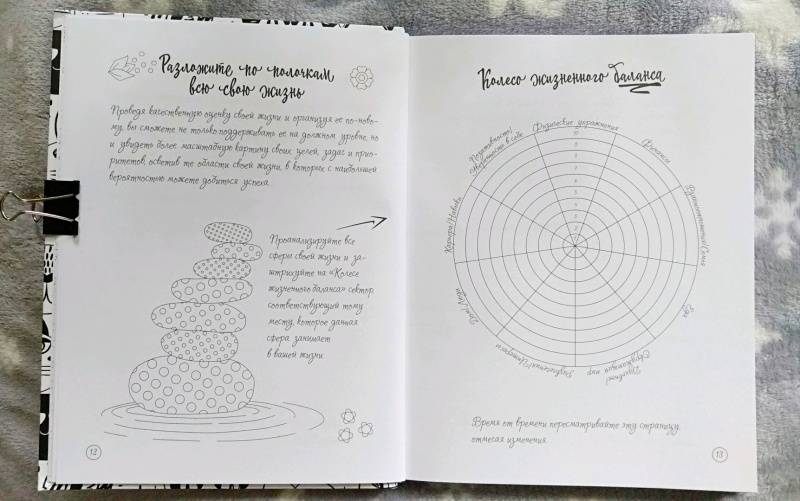 Разложите по полочкам
всю свою жизнь
Проведя качественную оценку своей жизни и организуя ее по-ново-
му, вы сможете не только поддерживать ее на должном уровне, но
и увидеть более масштабную картину своих целей, задач и прио-
ритетов, осветив те области своей жизни, в которых с наибольшей
вероятностью можете добиться успеха.
Проанализируйте все
сферы своей жизни и за-
штрихуйте на «Колесе
жизненного баланса» сектор,
соответствующий тому
месту, которое данная
сфера занимает
в вашей жизни.
12
Колесо жизненного баланса
Физические упражнения
Финансы
Взаимоотношения/Семья
Еда
Духовность/
Окружающий мир
Увлечения/Интересы
Дом/Быт
Карьера/Навыки
Позитивность/
уверенность в себе
Время от времени пересматривайте эту страницу,
отмечая изменения.
13